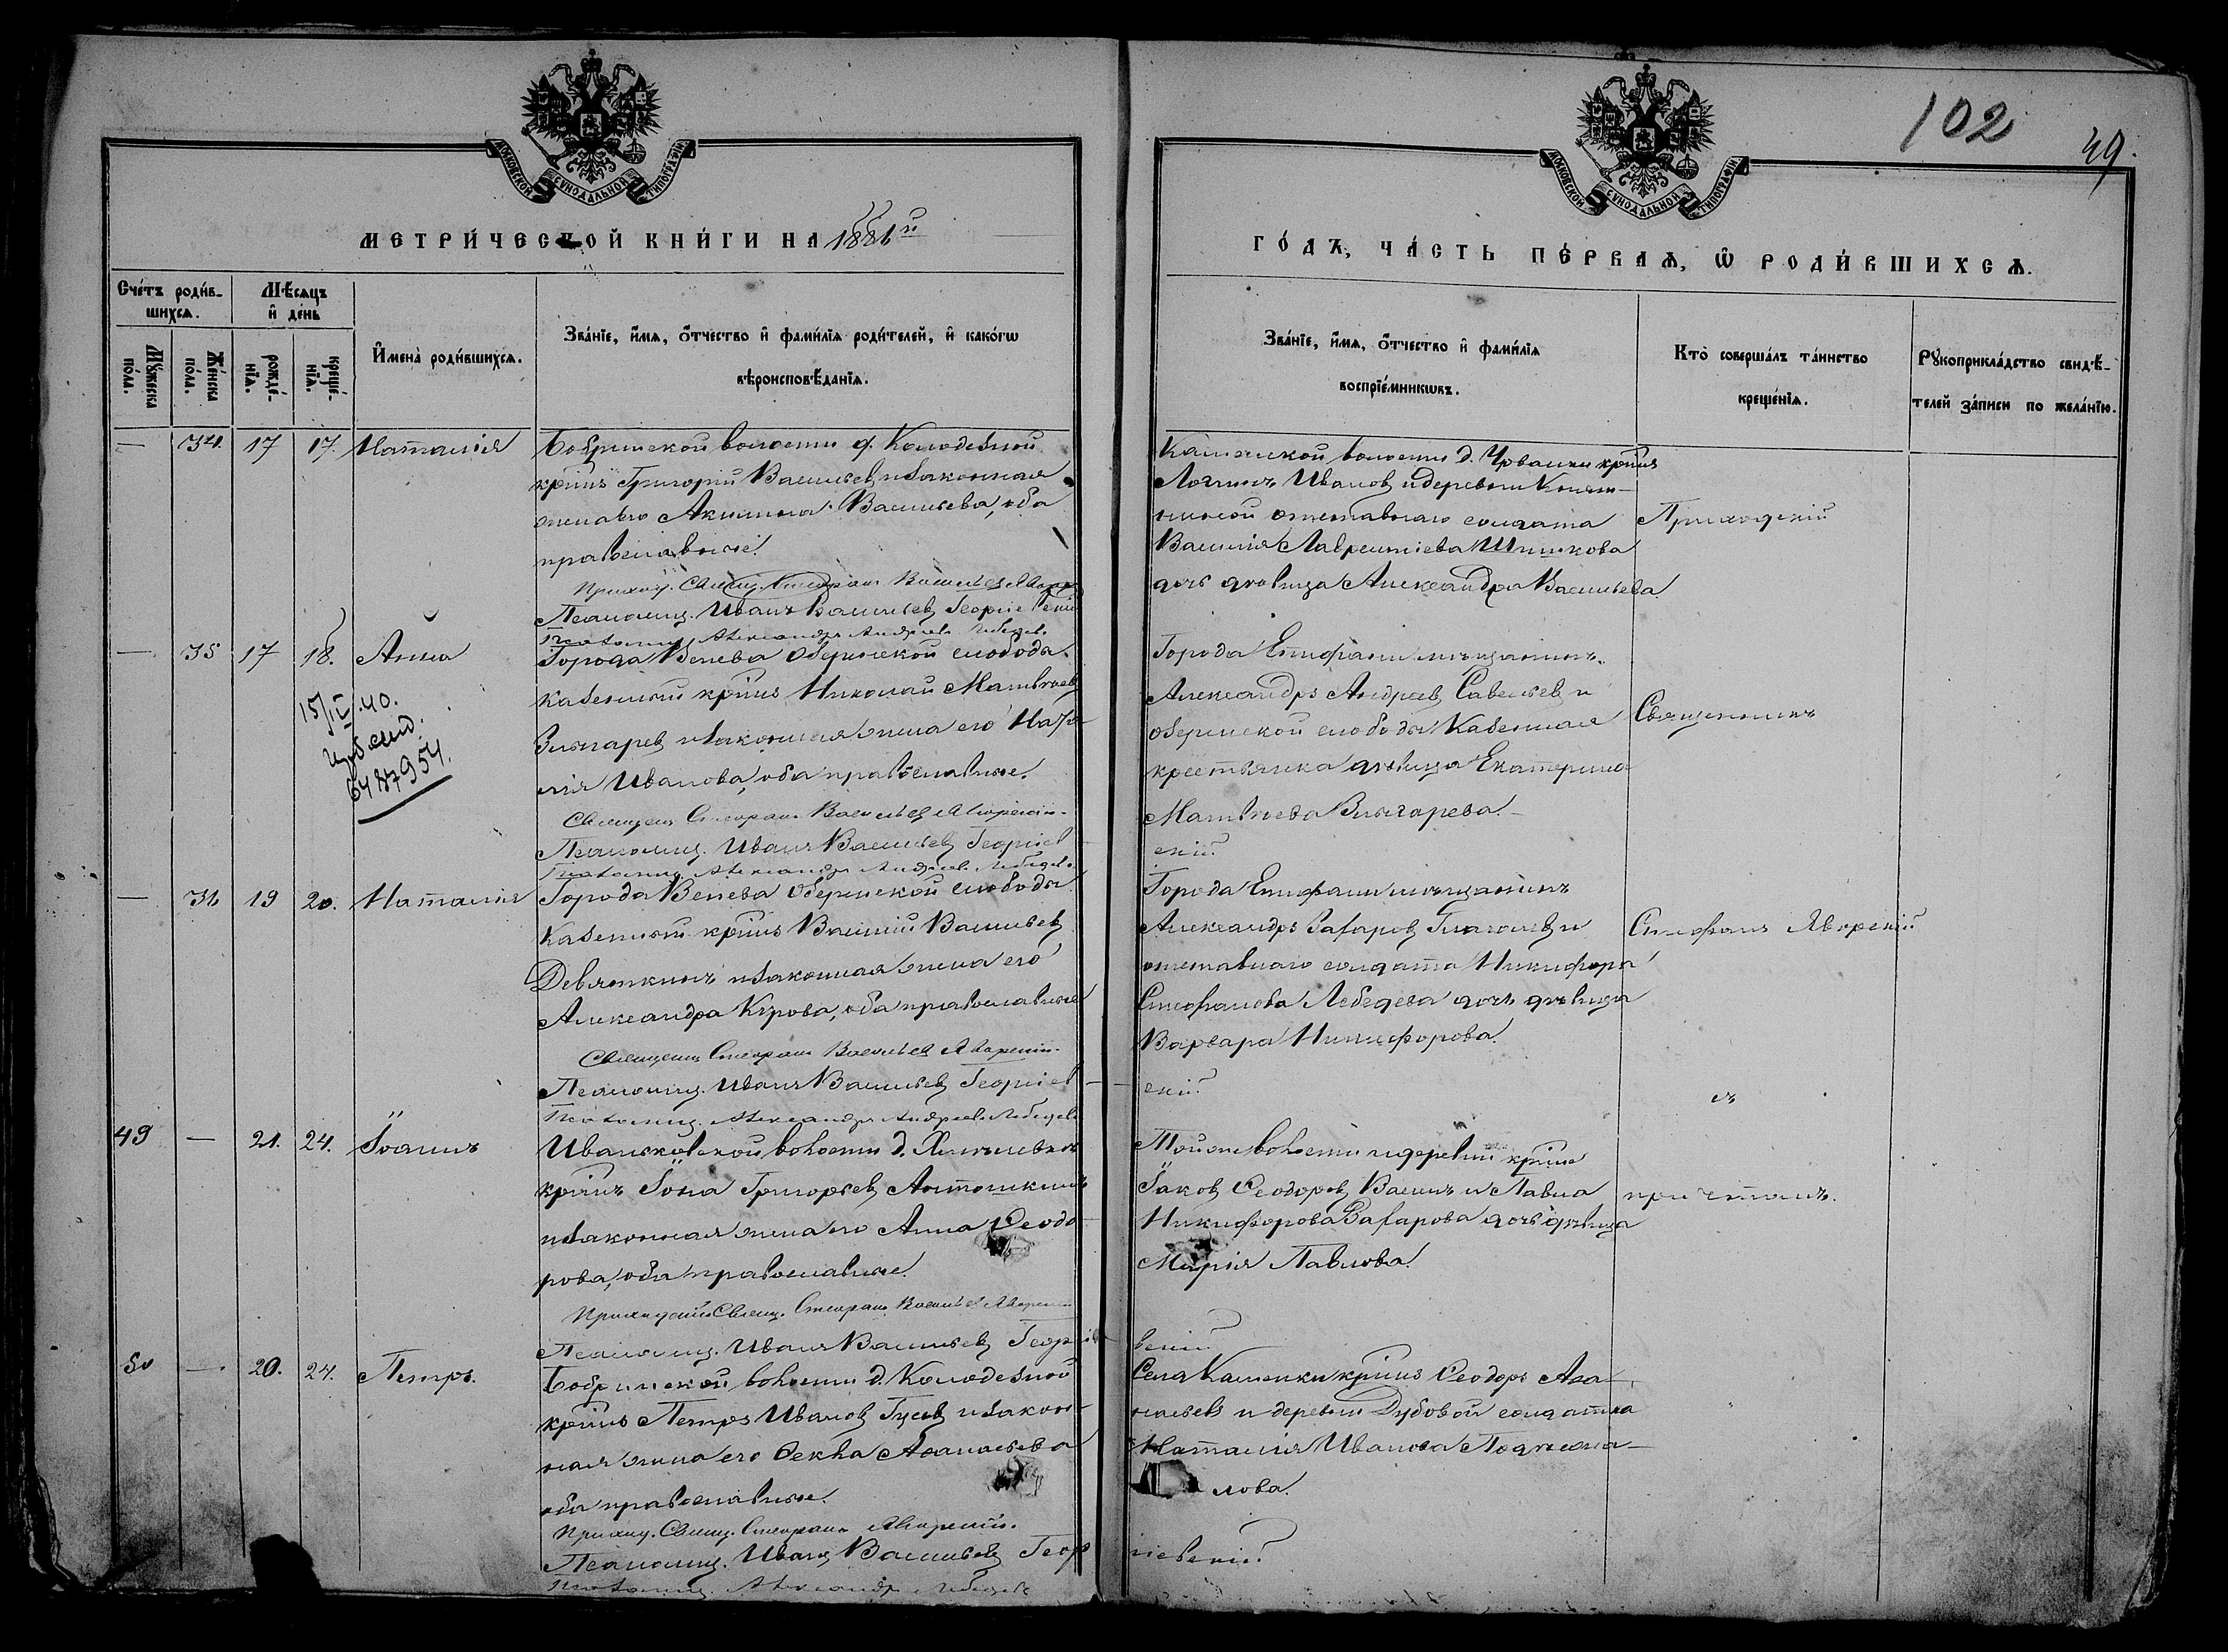 102
49.
МОСКОВСКОЙ СѴНОДАЛЬНОЙ ТИПОГРАФІИ
МОСКОВСКОЙ СѴНОДАЛЬНОЙ ТИПОГРАФІИ
МЕТРИ́ЧЕСКОЙ КНИ́ГИ НА 1886й
ГО́ДЪ, ЧА́СТЬ ПЕ́РВАѦ, Ѿ РОДИ́ВШИХСѦ.
Сче́тъ роди́в-
шихсѧ.
Мѣ́сѧцъ
и҆ де́нь
Мꙋ́жеска по́ла.
Же́нска по́ла.
рожде́-нїѧ.
креще́-нїѧ.
И҆мена̀ роди́вшихсѧ.
Зва́нїе, и҆́мѧ, ѻ҆́тчество и҆ фами́лїѧ роди́телей, и҆ како́гѡ
вѣроисповѣ́данїѧ.
Зва́нїе, и҆́мѧ, ѻ҆́тчество и҆ фами́лїѧ
воспрїе́мникѡвъ.
Кто̀ соверша́лъ та́инство
креще́нїѧ.
Рꙋкоприкла́дство свидѣ́-
телей за́писи по жела́нїю.
— 34. 17 17. Наталія
Бобринской волости д. Колодезной
крнъ Григорій Васильев и законная
жена его Акилина Васильева, оба
православные.
Приход. Священ. Стефанъ Васильев Явор
Псаломщ. Иванъ Васильев Георгіевскій
Псаломщ. Александръ Андреев Лебедев
Каменской волости д.
Логинъ Иванов и деревни
отставнаго солдата
Василія Лаврентіева Шишкова
дочь дѣвица Александра Васильева.
Приходскій
— 35 17 18. Анна
15/IV 40.
6487954.
Города Венева Озеренской слобода.
казенный крнъ Николай Матвѣев
и законная жена его Ната-
лія Иванова, оба православные.
Священ. Стефанъ Васильев Яворскій.
Псаломщ. Иванъ Васильев Георгіев
скій.
Псаломщ. Александръ Андреев Лебедев.
Города Епифани мѣщанинъ.
Александръ Андреев Савельев и
озеренской слободы казенная
крестьянка дѣвица Екатерина
Матвѣева
Священникъ
— 36 19 20. Наталія
Города Венева Озеренской слободы
казенный крнъ Василій Васильев
Девяткинъ и законная жена его
Александра Кірова, оба православные
Священ. Стефанъ Васильев Яворскій.
Псаломщ. Иванъ Васильев Георгіев
скій.
Псаломщ. Александръ Андреев Лебедев
Города Епифани мѣщанинъ
Александръ Захаров и
отставнаго солдата Никифора
Стефанова Лебедева дочь дѣвица
Варвара Никифорова.
Стефанъ Яворскій
съ
49 — 21. 24. Іоаннъ
Иваньковской волости д.
крнъ Іона Григорьев Антошкинъ
и законная жена его Анна Ѳеодо-
рова, оба православные.
Приходскій Священ. Стефанъ Васильев Яворскій
Псаломщ. Иванъ Васильев Георгіе
вскій
Той же волости и деревни крнъ
Іаков Ѳеодоров и Павла
Никифорова Захарова дочь дѣвица
Марія Павлова.
причтомъ.
50 — 20. 24. Петръ.
Бобринской волости д. Колодезной
крнъ Петръ Иванов Гусев и закон-
ная жена его Ѳекла Аѳанасьева
оба православные.
Приход. Священ. Стефанъ Яворскій.
Псаломщ. Иванъ Васильев Геор
гіевскій
Псаломщ. Александръ Лебедев
Села Каменки крнъ Ѳеодоръ Аѳа-
насьевъ и деревни Дубовой солдатка
Наталія Иванова
лова.